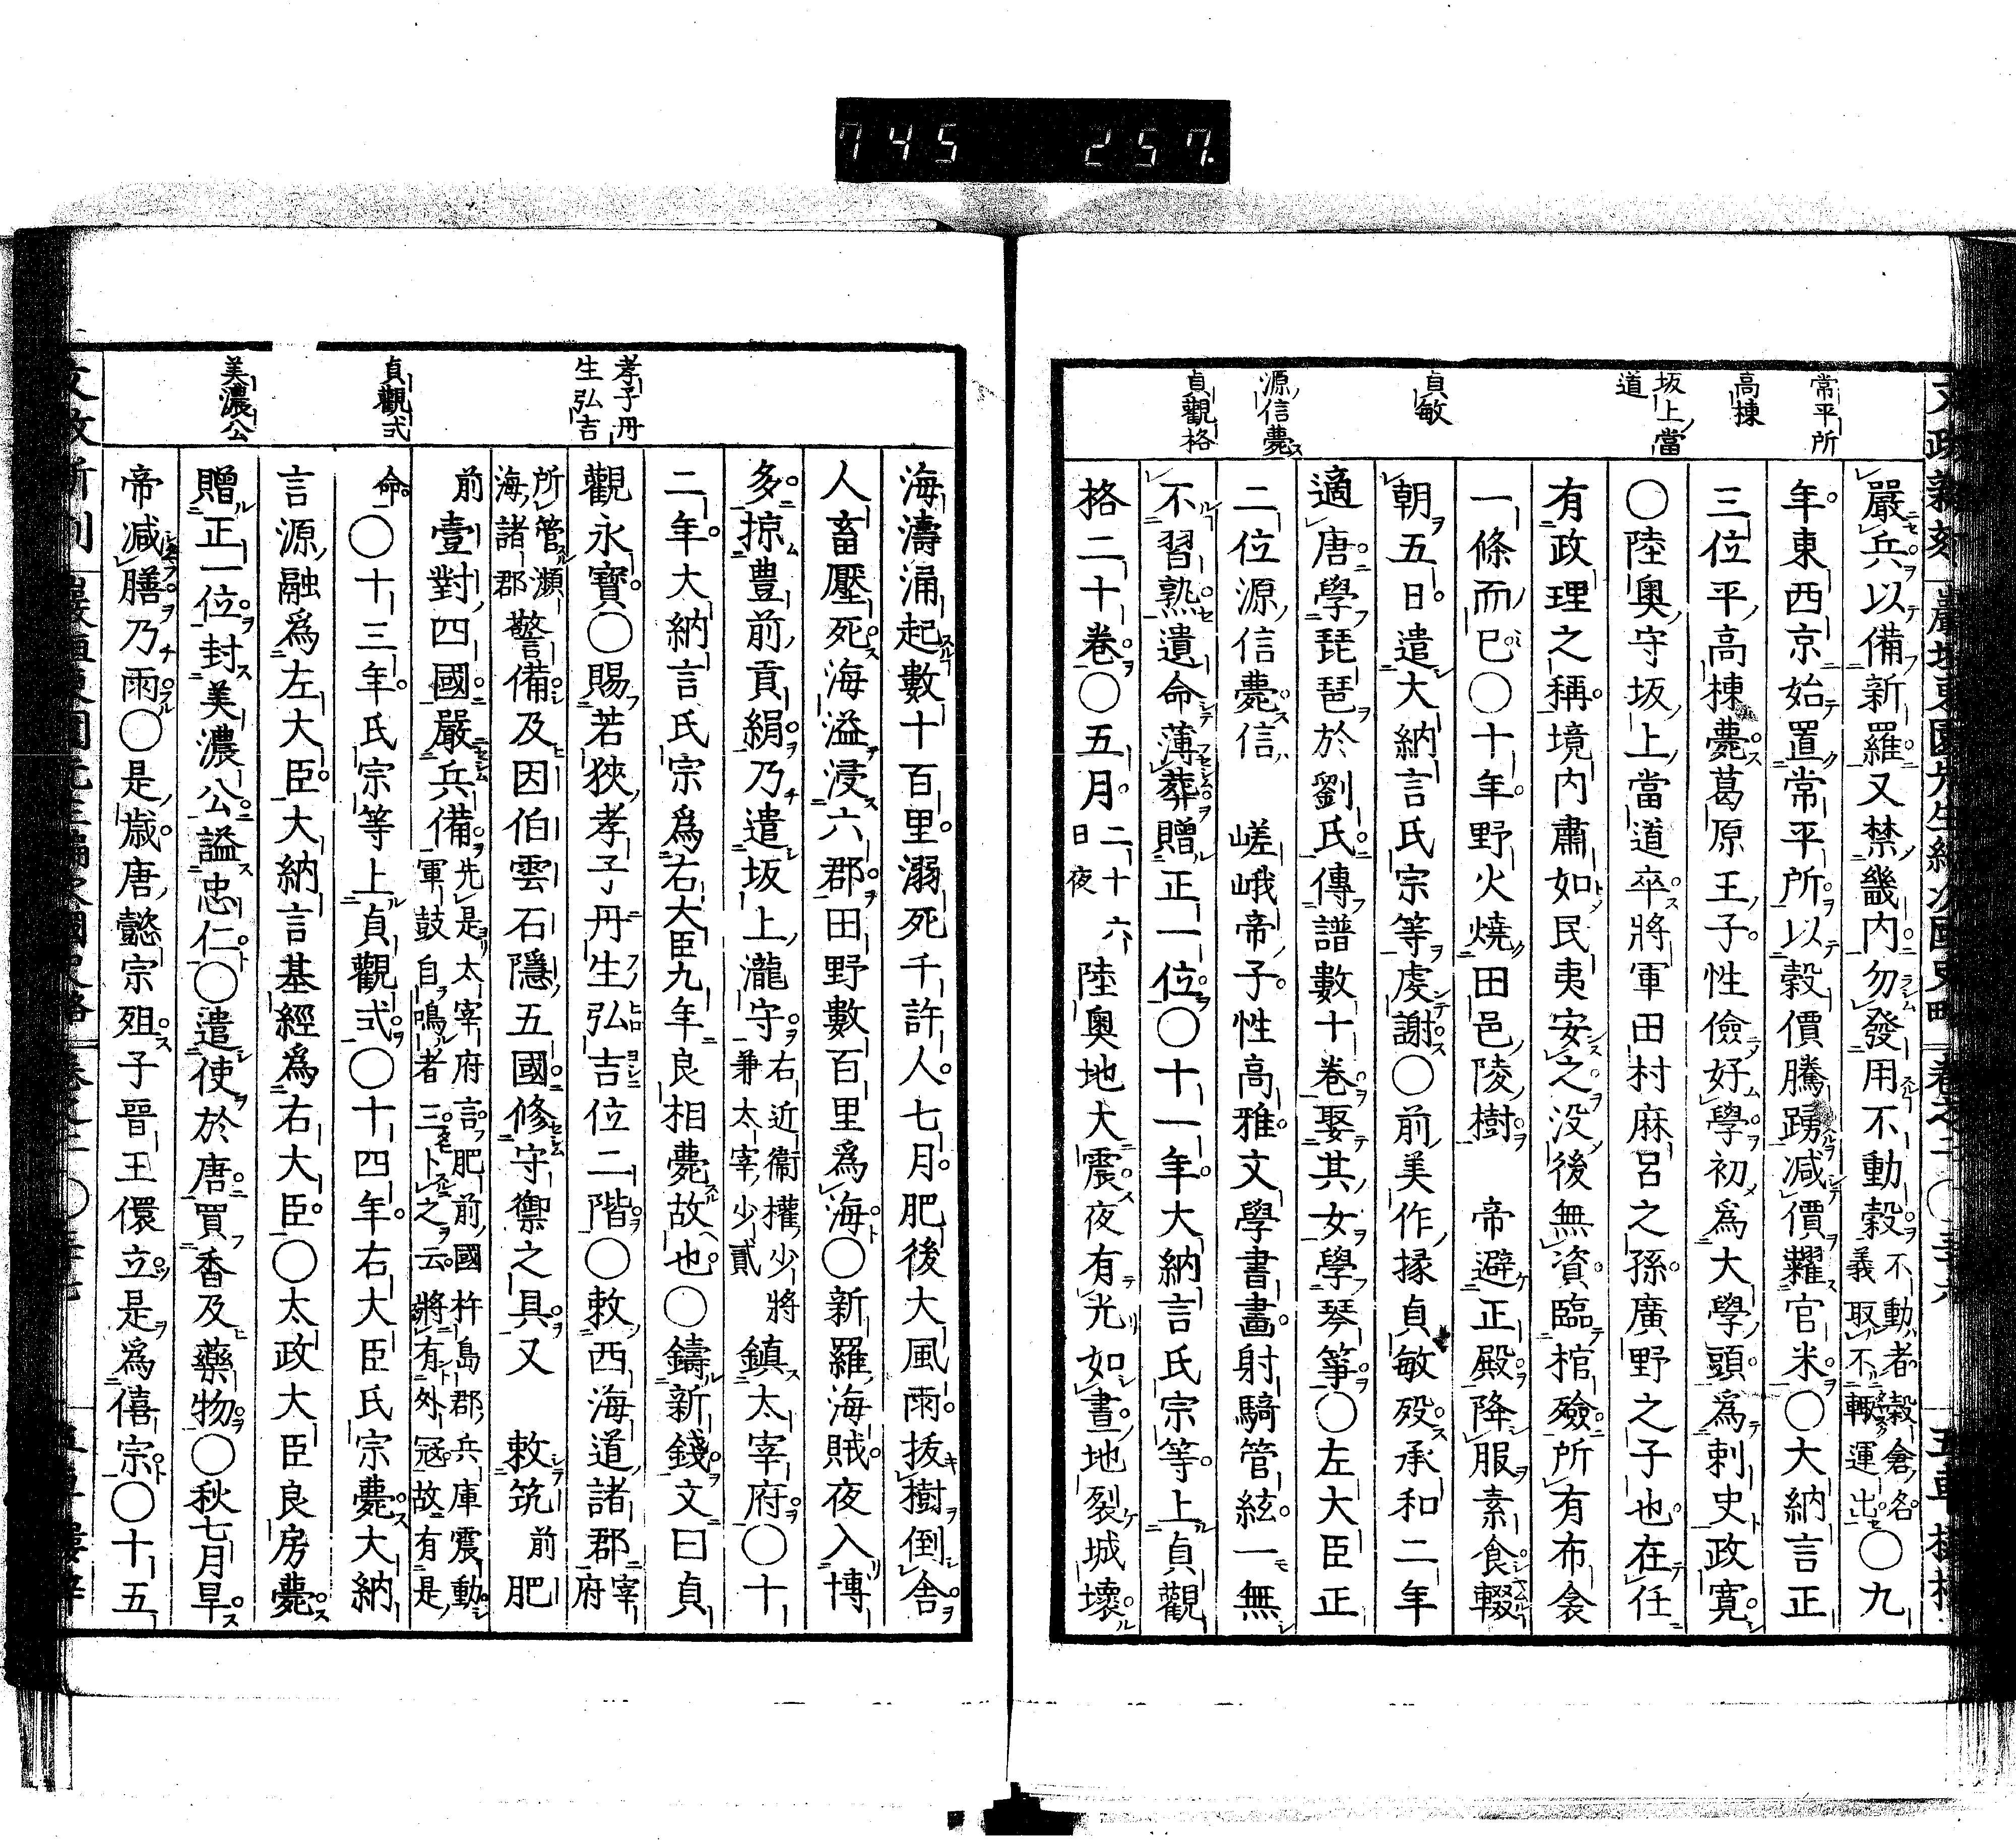 745 257.
常平所
高棟
坂上當道
貞敏
源信薨ス
貞觀格
嚴兵以備新羅又禁畿内勿發用不動穀不動者穀倉名義取不輙運出〇九
年東西京始置常平所以穀價騰踴减價糶官米〇大納言正
三位平高棟薨葛原王子性儉好學初爲大學頭爲刺史政寛
〇陸奥守坂上當道卒將軍田村麻呂之孫廣野之子也在任
有政理之稱境内肅如民夷安之没後無資臨棺殮所有布衾
一條而已〇十年野火燒田邑陵樹 帝避正殿降服素食輟
朝五日遣大納言氏宗等䖏謝〇前美作掾貞敏殁承和二年
適唐學琵琶於劉氏傳譜數十卷娶其女學琴箏〇左大臣正
二位源信薨信 嵯峨帝子性高雅文學書畵射騎管絃一無
不習熟遺命薄葬贈正一位〇十一年大納言氏宗等上貞觀
格二十卷〇五月二十六日夜陸奥地大震夜有光如晝地裂城壞
孝子丹生弘吉
貞觀式
美濃公
海濤涌起數十百里溺死千許人七月肥後大風雨拔樹倒舎
人畜壓死海溢浸六郡田野數百里爲海〇新羅海賊夜入博
多掠豊前貢絹乃遣坂上瀧守右近衞權少將兼太宰少貳鎮太宰府〇十
二年大納言氏宗爲右大臣九年良相薨故也〇鑄新錢文曰貞
觀永寳〇賜若狹孝子丹生弘吉位二階〇敕西海道諸郡宰府
所管瀕海諸郡警備及因伯雲石隱五國修守禦之具又 敕筑前肥
前壹對四國嚴兵備先是太宰府言肥前國杵島郡兵庫震動軍鼓自鳴者三卜之云將有外冦故有是
命〇十三年氏宗等上貞觀式〇十四年右大臣氏宗薨大納
言源融爲左大臣大納言基經爲右大臣〇太政大臣良房薨
贈正一位封美濃公謚忠仁〇遣使於唐買香及藥物〇秋七月旱
帝减膳乃雨〇是歳唐懿宗殂子晉王儇立是爲僖宗〇十五